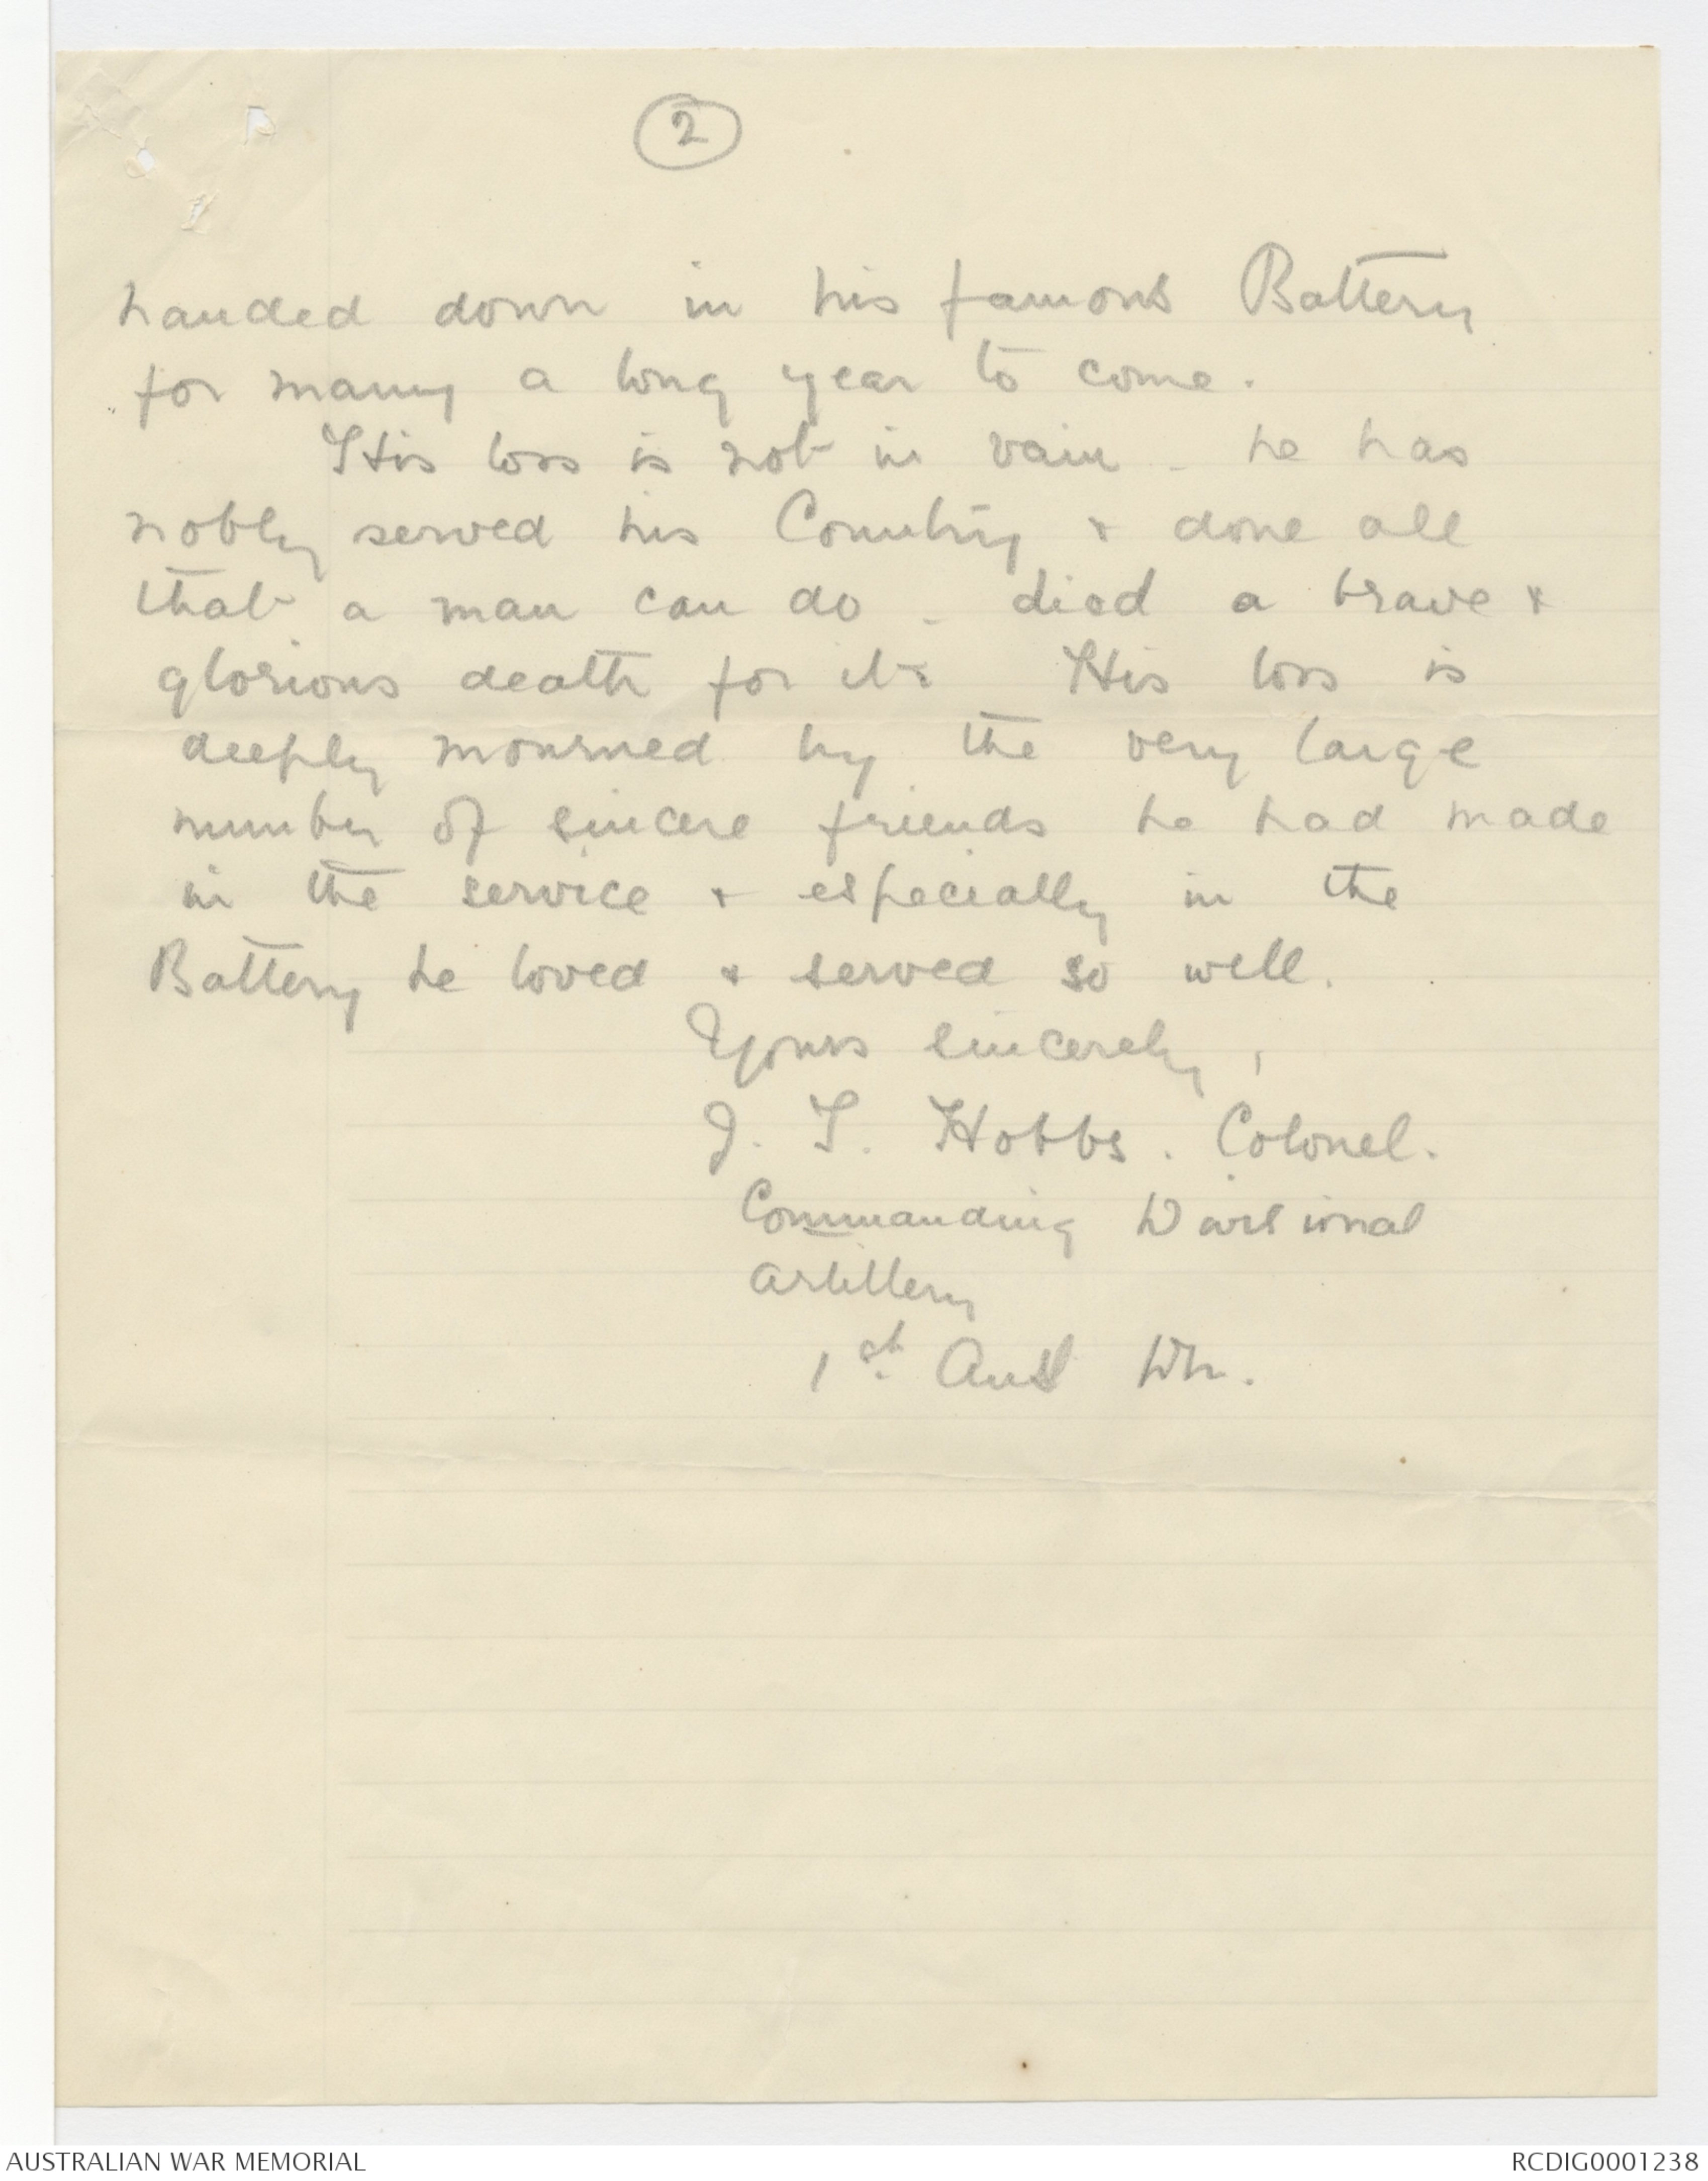 2
handed down in his famous Battery
for many a long year to come.
His loss is not in vain - he has
nobly served his Country & done all
that a man can do - died a brave &
glorious death for it. His loss is
deeply mourned by the very large
number of sincere friends he had made
in the service & especially in the
Battery he loved & served so well.
Yours sincerely,
J. T. Hobbs. Colonel.
Commanding Divisional
Artillery
1st Aust Div.
AUSTRALIAN WAR MEMORIAL
RCDIG0001238